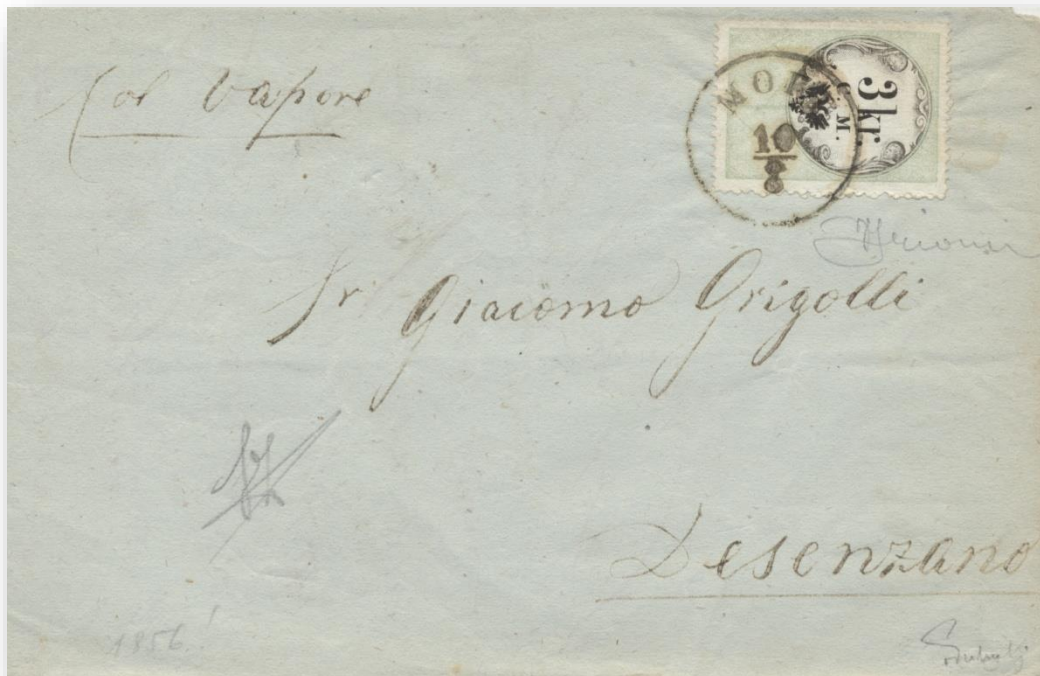 Col Vapore
3 kr.
C. M.
MORI
10
8
Sr Giacomo Grigolli
Desenzano
1856!